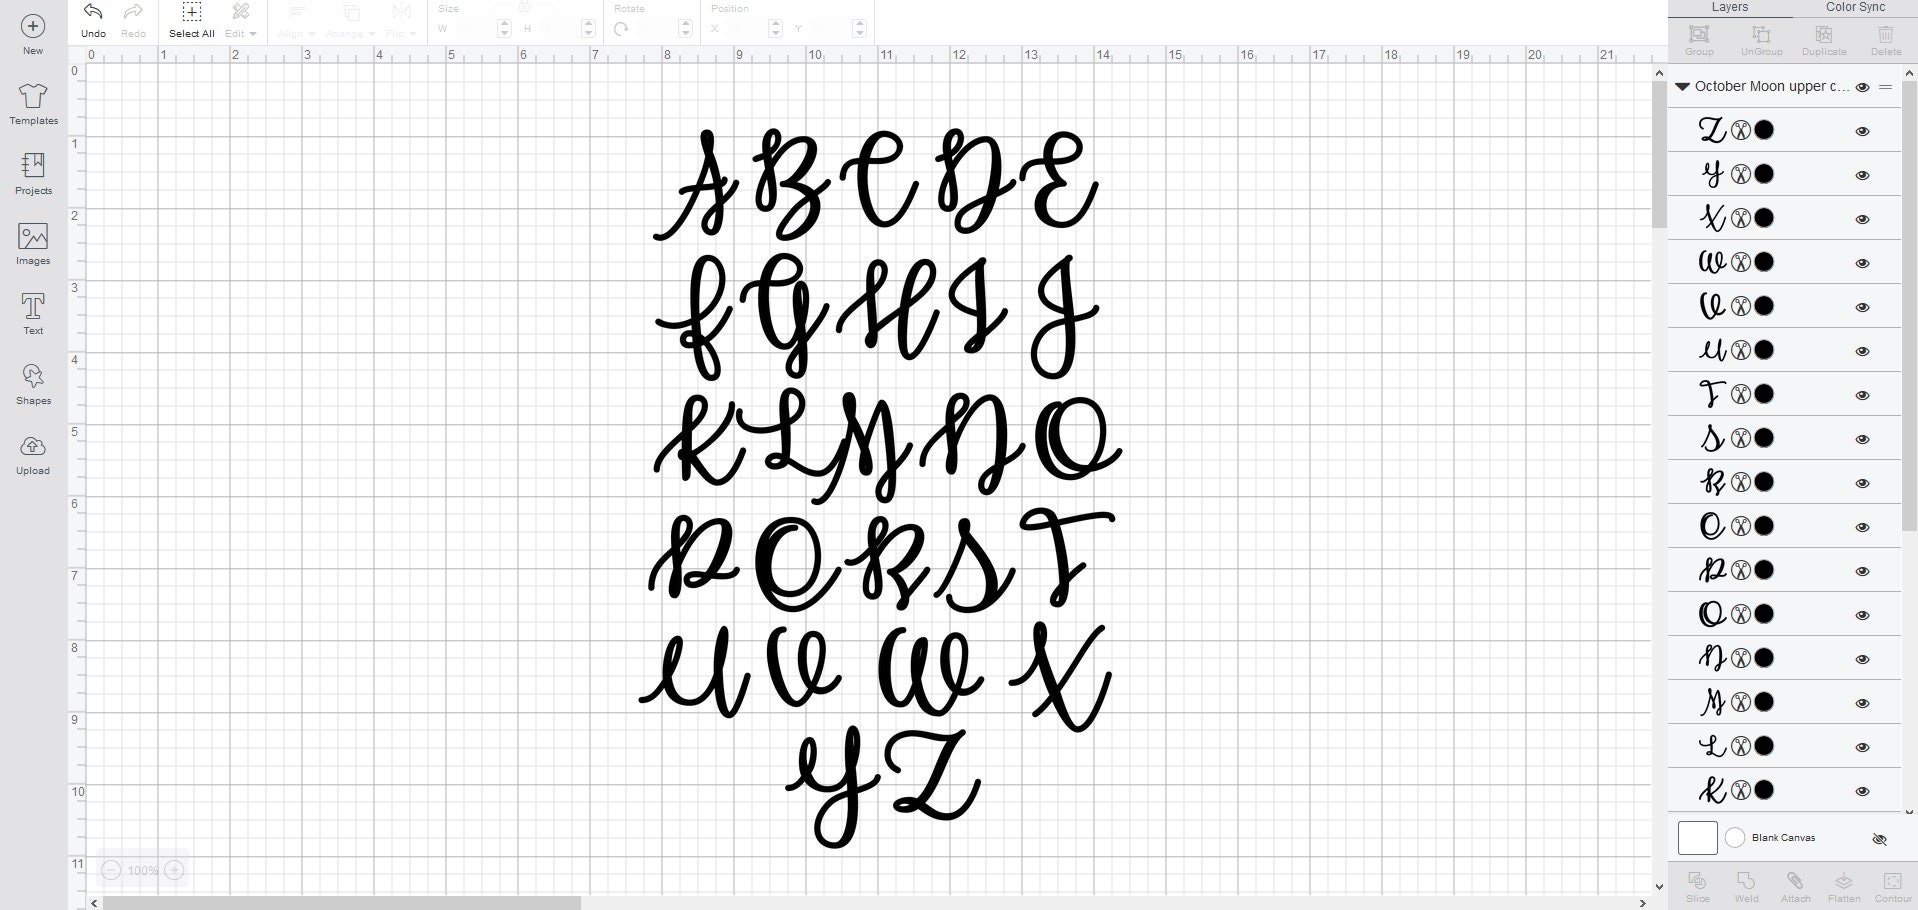 Undo Redo Select All Edit Align Arrange Flip Size W H Rotate Position X Y
Layers Color Sync
Group UnGroup Duplicate Delete
New
Templates
Projects
Images
Text
Shapes
Upload
0 1 2 3 4 5 6 7 8 9 10 11 12 13 14 15 16 17 18 19 20 21
0
1
2
3
4
5
6
7
8
9
10
11
A B C D E
F G H I J
K L M N O
P Q R S T
U V W X
Y Z
100%
October Moon upper c...
Z
Y
X
W
V
U
T
S
R
Q
P
O
N
M
L
K
Blank Canvas
Slice Weld Attach Flatten Contour